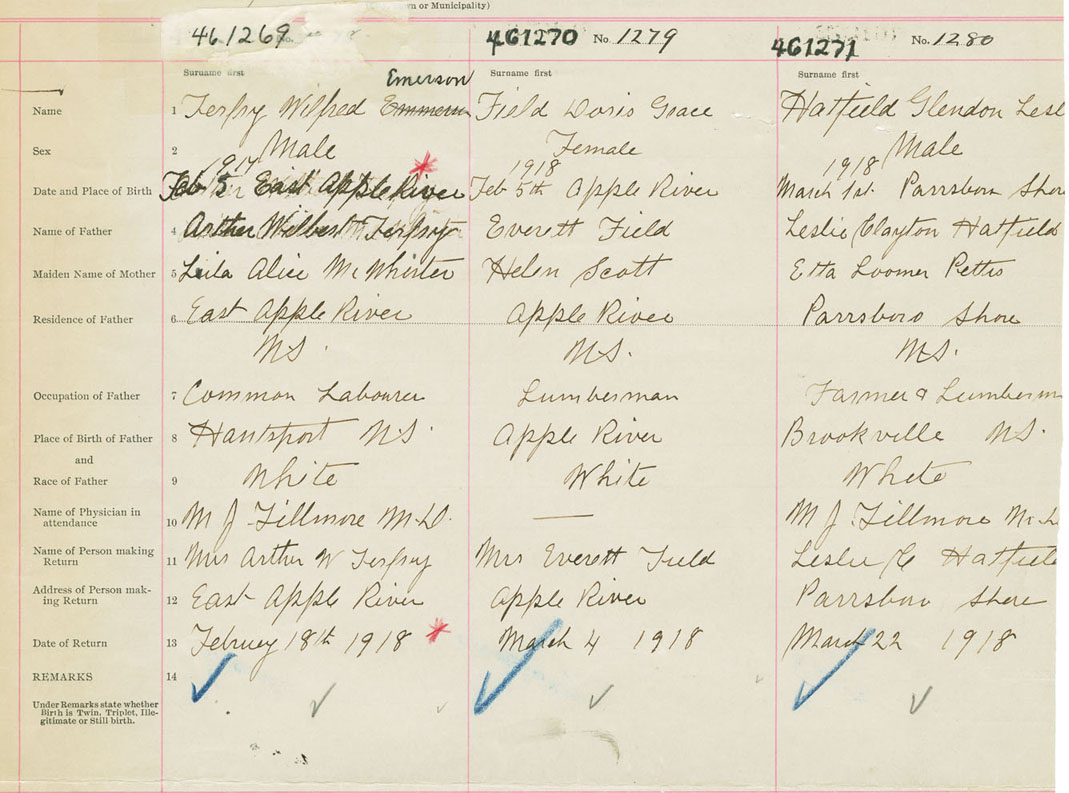 wn or Municipality)
461269
461270 No. 1279
461271 No. 1280
Surname first Surname first Surname first
Emerson
Name 1 Wilfred Field Doris Grace Hatfield Glendon Lesl
Sex 2 Male Female Male
1917 1918 1918
Date and Place of Birth Feb 5 East Apple River Feb 5th Apple River March 1st. Parrsboro Shore
Name of Father 4 Arthur Wilbert Everett Field Leslie Clayton Hatfield
Maiden Name of Mother 5 Leila Alice McWhirter Helen Scott Etta Loomer Pettis
Residence of Father 6 East Apple River Apple River Parrsboro Shore
N.S. N.S. N.S.
Occupation of Father 7 Common Labourer Lumberman Farmer & Lumberm
Place of Birth of Father 8 Hantsport N.S. Apple River Brookville N.S.
and
Race of Father 9 White White White
Name of Physician in
attendance 10 M J Fillmore M.D. — M J. Fillmore M.D
Name of Person making
Return 11 Mrs Arthur W Mrs Everett Field Leslie C Hatfield
Address of Person mak-
ing Return 12 East Apple River Apple River Parrsboro Shore
Date of Return 13 Februey 18th 1918 March 4 1918 March 22 1918
REMARKS 14
Under Remarks state whether
Birth is Twin, Triplet, Ille-
gitimate or Still birth.